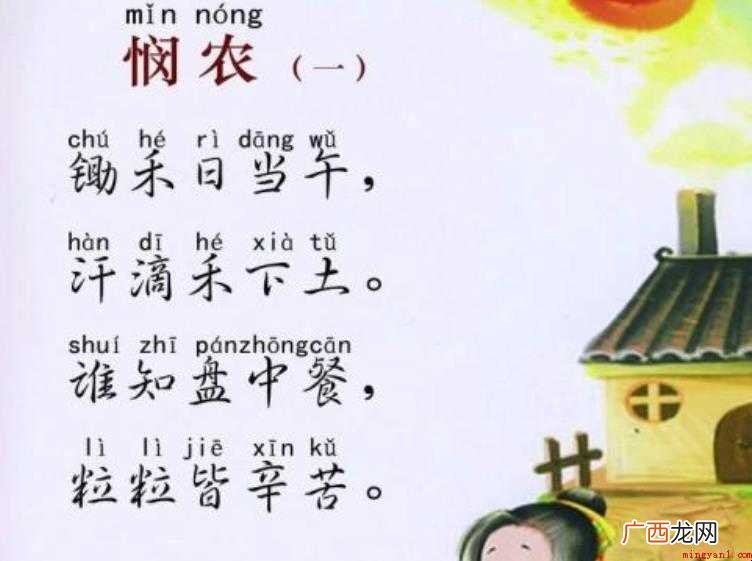 mǐn nóng
悯农（一）
chú hé rì dāng wǔ
锄禾日当午，
hàn dī hé xià tǔ
汗滴禾下土。
shuí zhī pánzhōngcān
谁知盘中餐，
lì lì jiē xīn kǔ
粒粒皆辛苦。
广西龙网
mingyan1.com